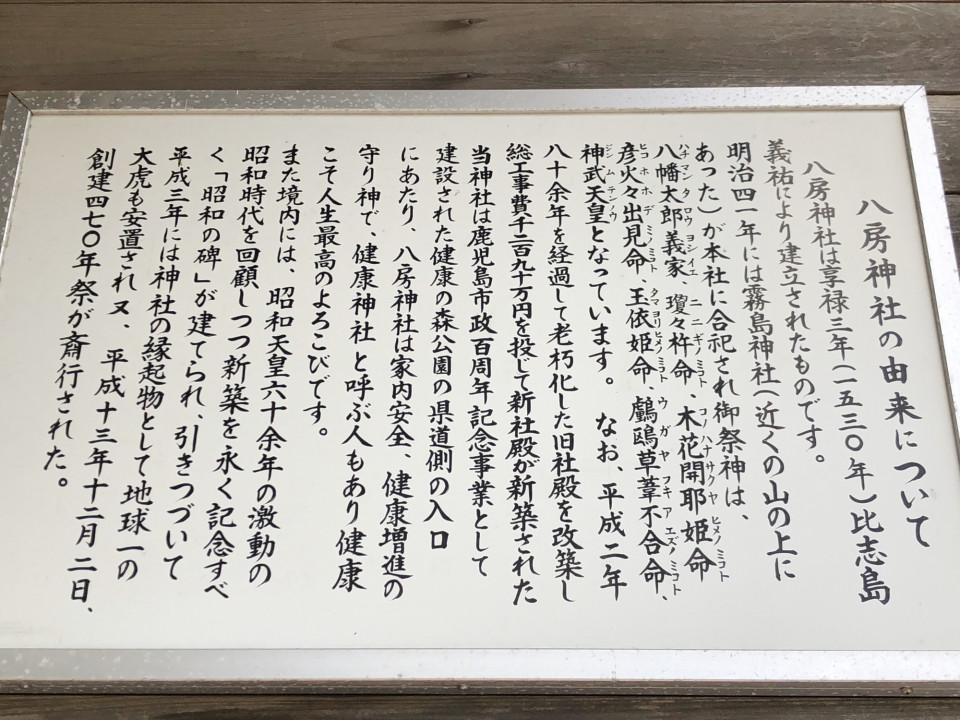 八房神社の由来について
八房神社は享禄三年(一五三〇年)比志島
義祐により建立されたものです。
明治四一年には霧島神社(近くの山の上に
あった)が本社に合祀され御祭神は、
八幡太郎義家、瓊々杵命、木花開耶姫命
ハチマンタロウヨシイエ ニニギノミコト コノハナサクヤヒメノミコト
彦火々出見命、玉依姫命、鸕鷀草葺不合命、
ヒコホホデミノミコト タマヨリヒメノミコト ウガヤフキアエズノミコト
神武天皇となっています。 なお、平成二年
ジンムテンノウ
八十余年を経過して老朽化した旧社殿を改築し
総工事費千二百九十万円を投じて新社殿が新築された
当神社は鹿児島市政百周年記念事業として
建設された健康の森公園の県道側の入口
にあたり、八房神社は家内安全、健康増進の
守り神で、健康神社と呼ぶ人もあり健康
こそ人生最高のよろこびです。
また境内には、昭和天皇六十余年の激動の
昭和時代を回顧しつつ新築を永く記念すべ
く「昭和の碑」が建てられ、引きつづいて
平成三年には神社の縁起物として地球一の
大虎も安置され又、平成十三年十二月二日、
創建四七〇年祭が斎行された。